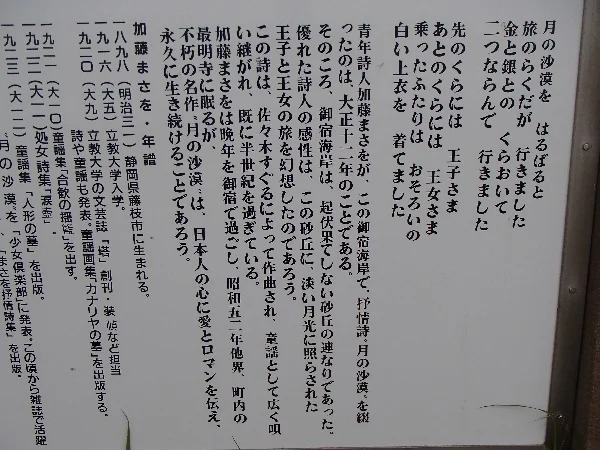 月の沙漠を はるばると
旅のらくだが 行きました
金と銀との くらおいて
二つならんで 行きました
先のくらには 王子さま
あとのくらには 王女さま
乗ったふたりは おそろいの
白い上衣を 着てました
青年詩人加藤まさをが、この御宿海岸で、抒情詩〝月の沙漠〟を綴
ったのは、大正十二年のことである。
そのころ、御宿海岸は、起伏果てしない砂丘の連なりであった。
優れた詩人の感性は、この砂丘に、淡い月光に照らされた
王子と王女の旅を幻想したのであろう。
この詩は、佐々木すぐるによって作曲され、童謡として広く唄
い継がれ、既に半世紀を過ぎている。
加藤まさをは晩年を御宿で過ごし、昭和五二年他界、町内の
最明寺に眠るが、
不朽の名作〝月の沙漠〟は、日本人の心に愛とロマンを伝え、
永久に生き続けることであろう。
加藤まさを・年譜
一八九八（明治三一）静岡県藤枝市に生まれる。
一九一六（大五）立教大学入学。
一九二〇（大九）立教大学の文芸誌「塔」創刊・装幀など担当
詩や童謡も発表。童謡画集「カナリヤの墓」を出版する。
一九二一（大一〇）童謡集「合歓の揺籃」を出す。
一九二二（大一一）処女詩集「涙壺」、
童謡集「人形の墓」を出版。
一九二三（大一二）〝月の沙漠〟を「少女倶楽部」に発表。この頃から雑誌で活躍
「まさを抒情詩集」を出版。